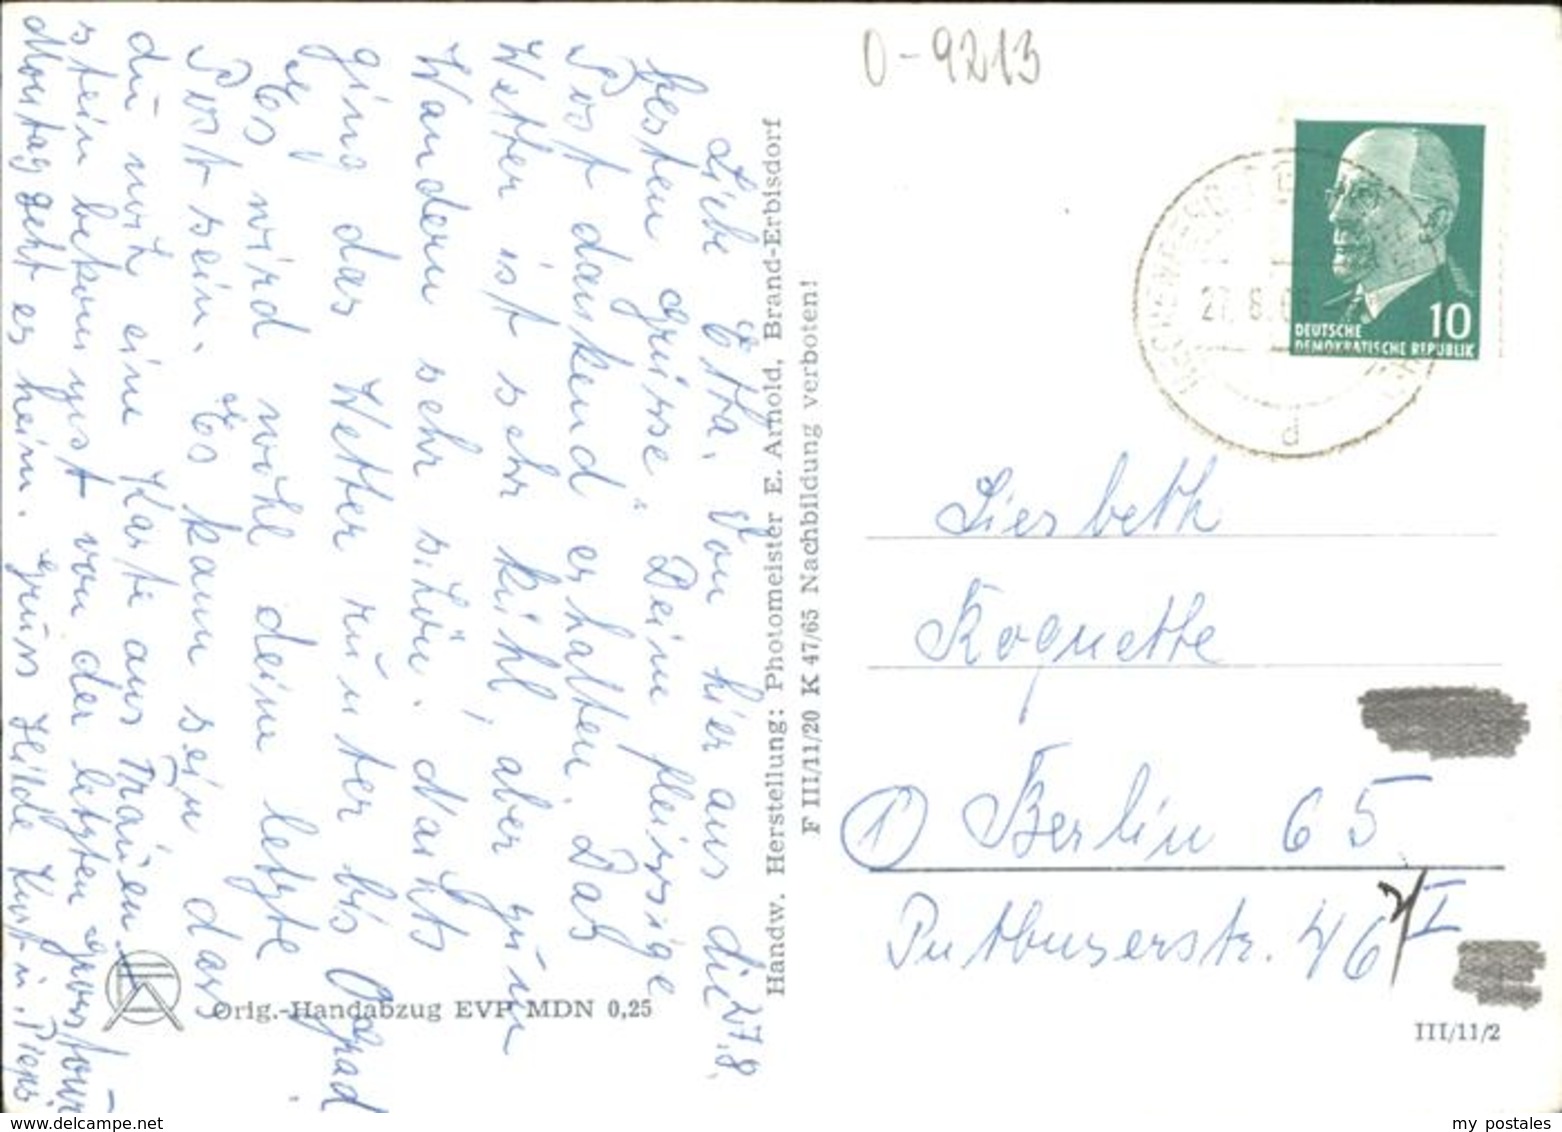 0-9213
27.8.
Liebe Etha. Von hier aus die
besten Grüsse. Deine fleissige
Post dankend erhalten. Das
Wetter ist sehr kühl, aber zum
Wandern sehr schön. Nachts
ging das Wetter runter bis 0 Grad
Es wird wohl deine letzte
Post sein. Es kann sein das
du noch eine Karte aus
stein bekommst von der letzten
Montag geht es heim. Gruss Hilde Kurt u.
Handw. Herstellung: Photomeister E. Arnold, Brand-Erbisdorf
F III/11/20 K 47/65 Nachbildung verboten!
Orig.-Handabzug EVP MDN 0,25
10
DEUTSCHE
DEMOKRATISCHE REPUBLIK
27.8.
d
Liesbeth
Roquette
1 Berlin 65
Putbuserstr. 46 I
III/11/2
my postales